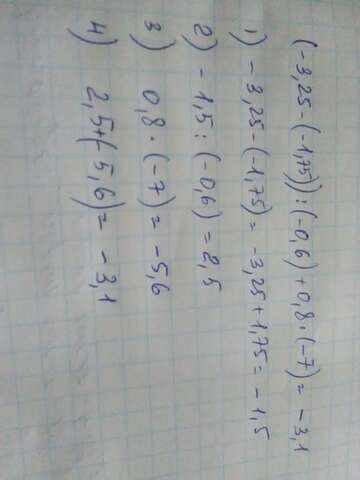 (-3,25-(-1,75)):(-0,6)+0,8·(-7)=-3,1
1) -3,25-(-1,75)= -3,25+1,75=-1,5
2) -1,5:(-0,6)=2,5
3) 0,8·(-7)=-5,6
4) 2,5+(-5,6)= -3,1